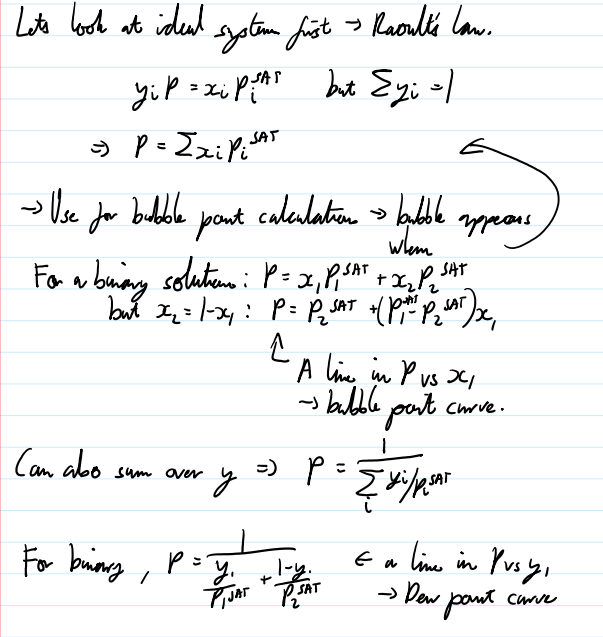 Lets look at ideal system first → Raoult's law.
yᵢ P = xᵢ Pᵢ^SAT but Σyᵢ = 1
⇒ P = Σxᵢ Pᵢ^SAT
→ Use for bubble point calculations → bubble appears
when
For a binary solution: P = x₁P₁^SAT + x₂P₂^SAT
but x₂ = 1-x₁ : P = P₂^SAT + (P₁^SAT - P₂^SAT)x₁
A line in P vs x₁
→ bubble point curve.
Can also sum over y ⇒ P = 1 / Σᵢ yᵢ/Pᵢ^SAT
For binary, P = 1 / (y₁/P₁^SAT + (1-y₁)/P₂^SAT) ← a line in P vs y₁
→ Dew point curve